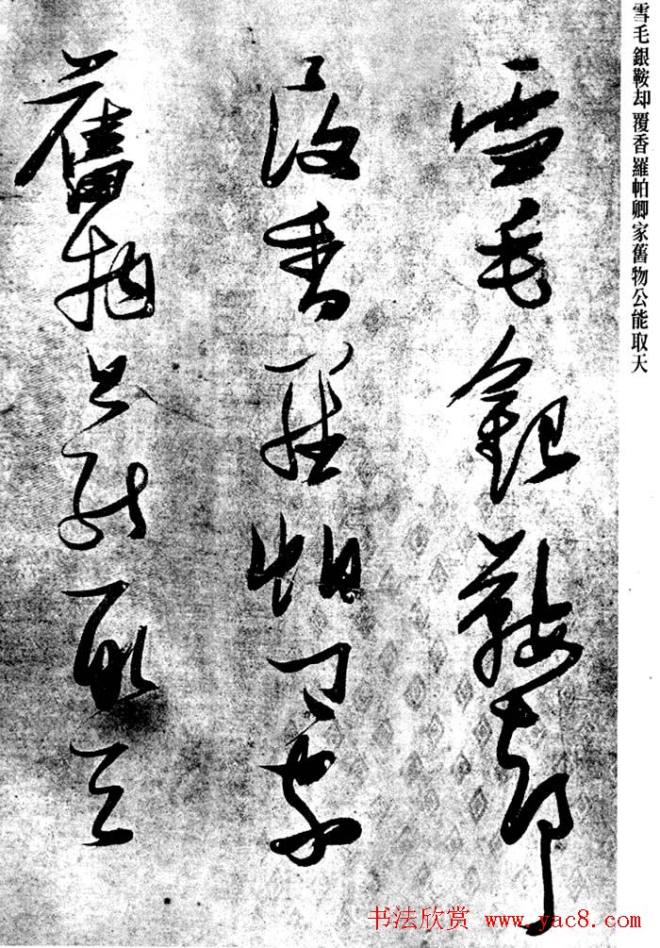 雪毛銀鞍却覆香羅帕卿家舊物公能取天
雪毛銀鞍却
覆香羅帕卿家
舊物公能取天
书法欣赏 www.yac8.com